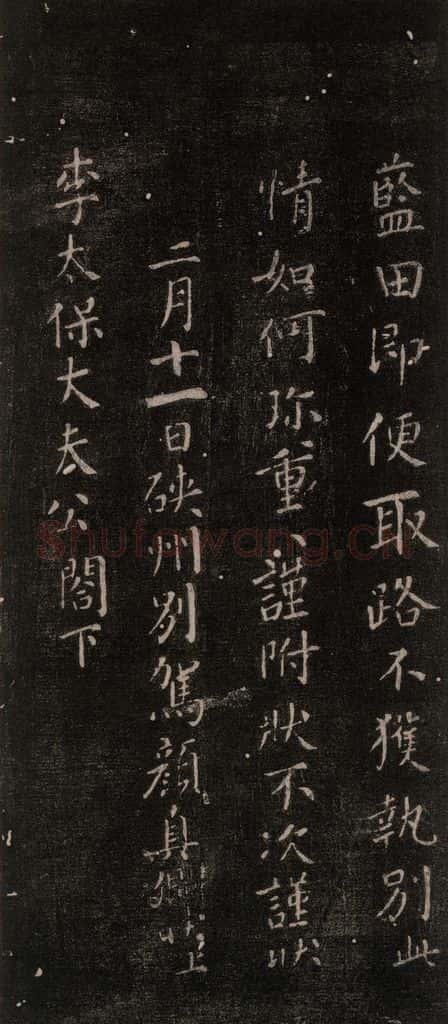 藍田即便取路不獲執別此
情如何珎重〻謹附狀不次謹狀
二月十一日硤州別駕顏真卿狀上
李太保大夫公閤下
Shufawang.cn